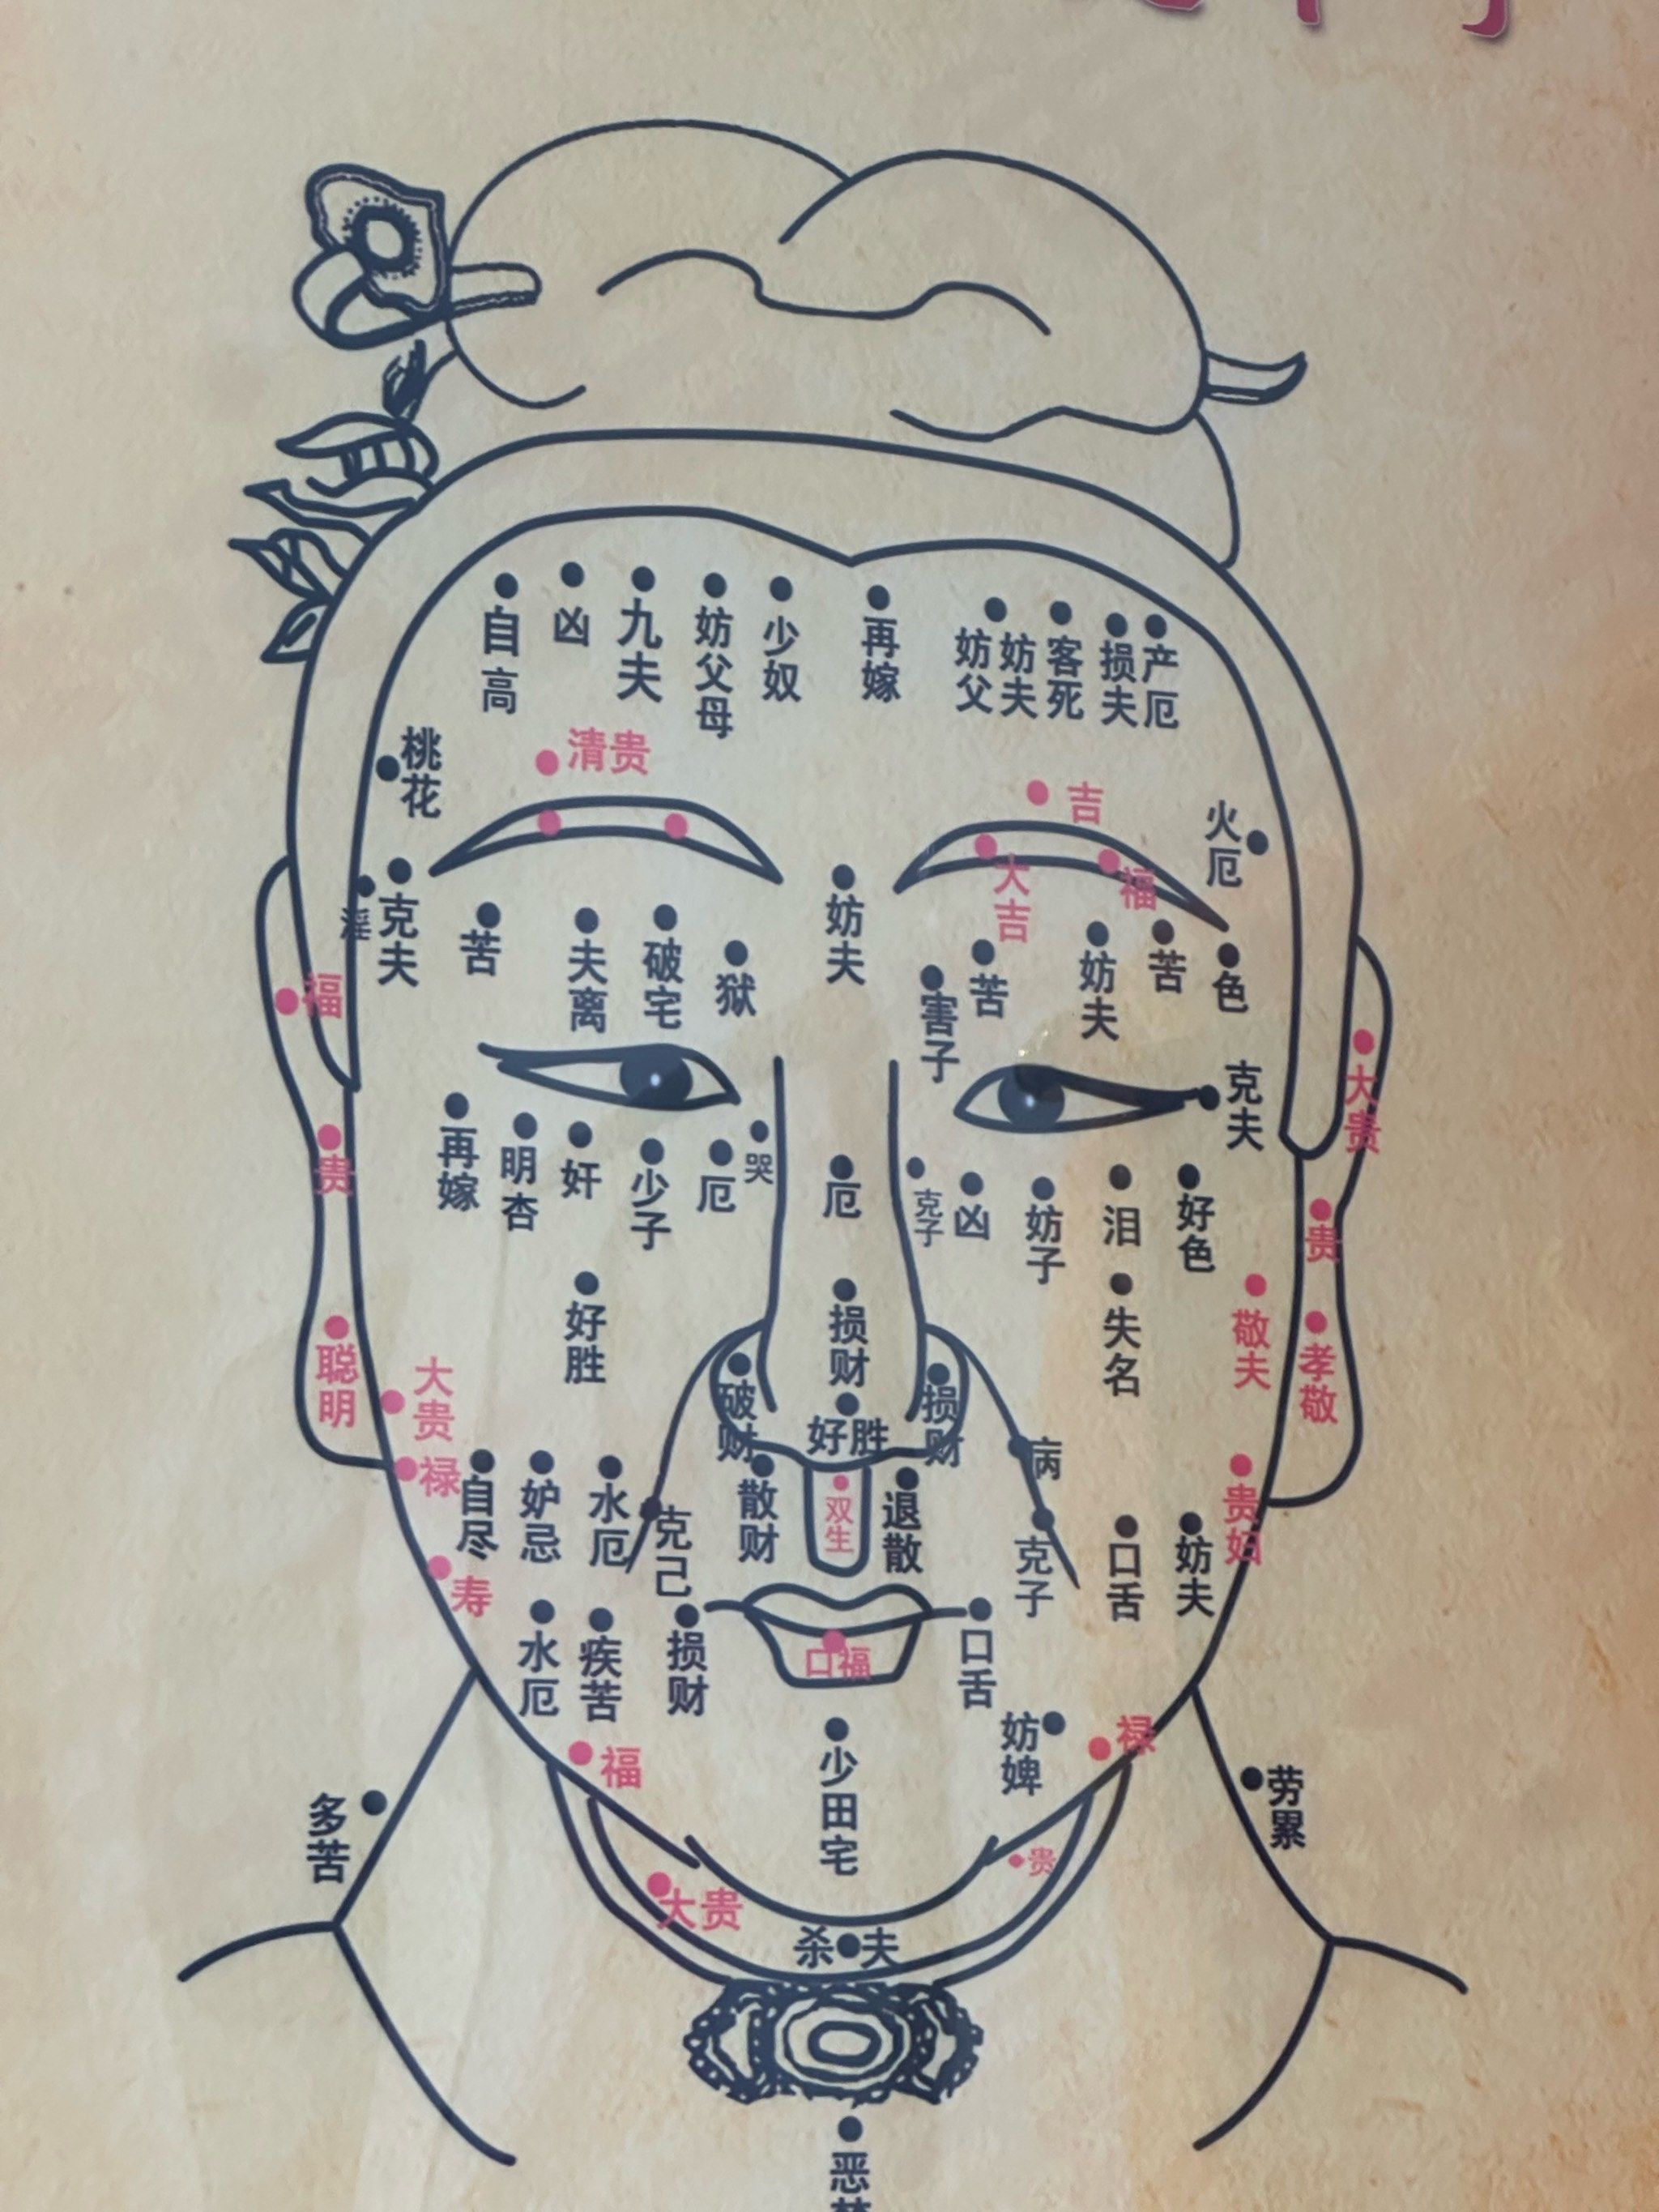 自高
凶
九夫
妨父母
少奴
再嫁
妨父
妨夫
客死
损夫
产厄
桃花
清贵
吉
火厄
大吉
福
淫
克夫
苦
夫离
破宅
狱
妨夫
害子
苦
妨夫
苦
色
福
克夫
大贵
贵
再嫁
明杏
奸
少子
厄
哭
厄
克子
凶
妨子
泪
好色
贵
好胜
损财
失名
敬夫
孝敬
聪明
大贵
破财
好胜
损财
病
禄
自尽
妒忌
水厄
克己
散财
双生
退散
克子
口舌
妨夫
贵妇
寿
水厄
疾苦
损财
口福
口舌
妨婢
禄
福
少田宅
多苦
劳累
大贵
贵
杀夫
恶